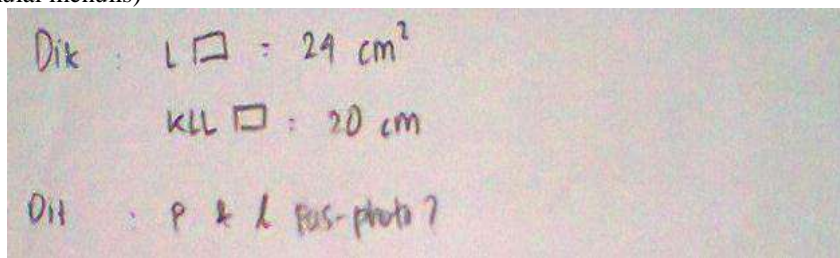 Dik : L ▭ = 24 cm²
KLL ▭ : 20 cm
Dit : p & l pas-photo?